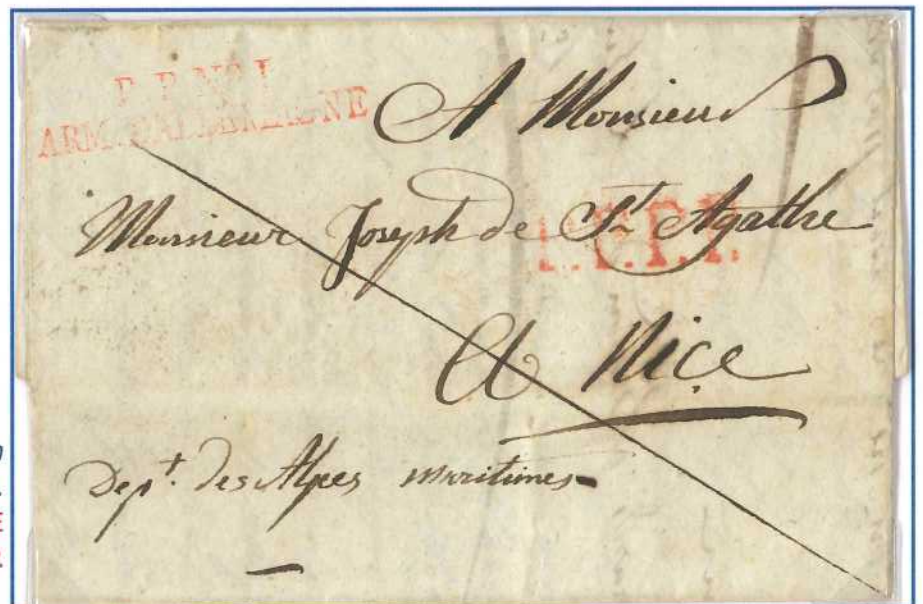 P. P. N° 1
ARM. D'ALLEMAGNE
A Monsieur
Monsieur Joseph de S.t Agathe
P.P.P.P.
A Nice
Dep.t des Alpes maritimes